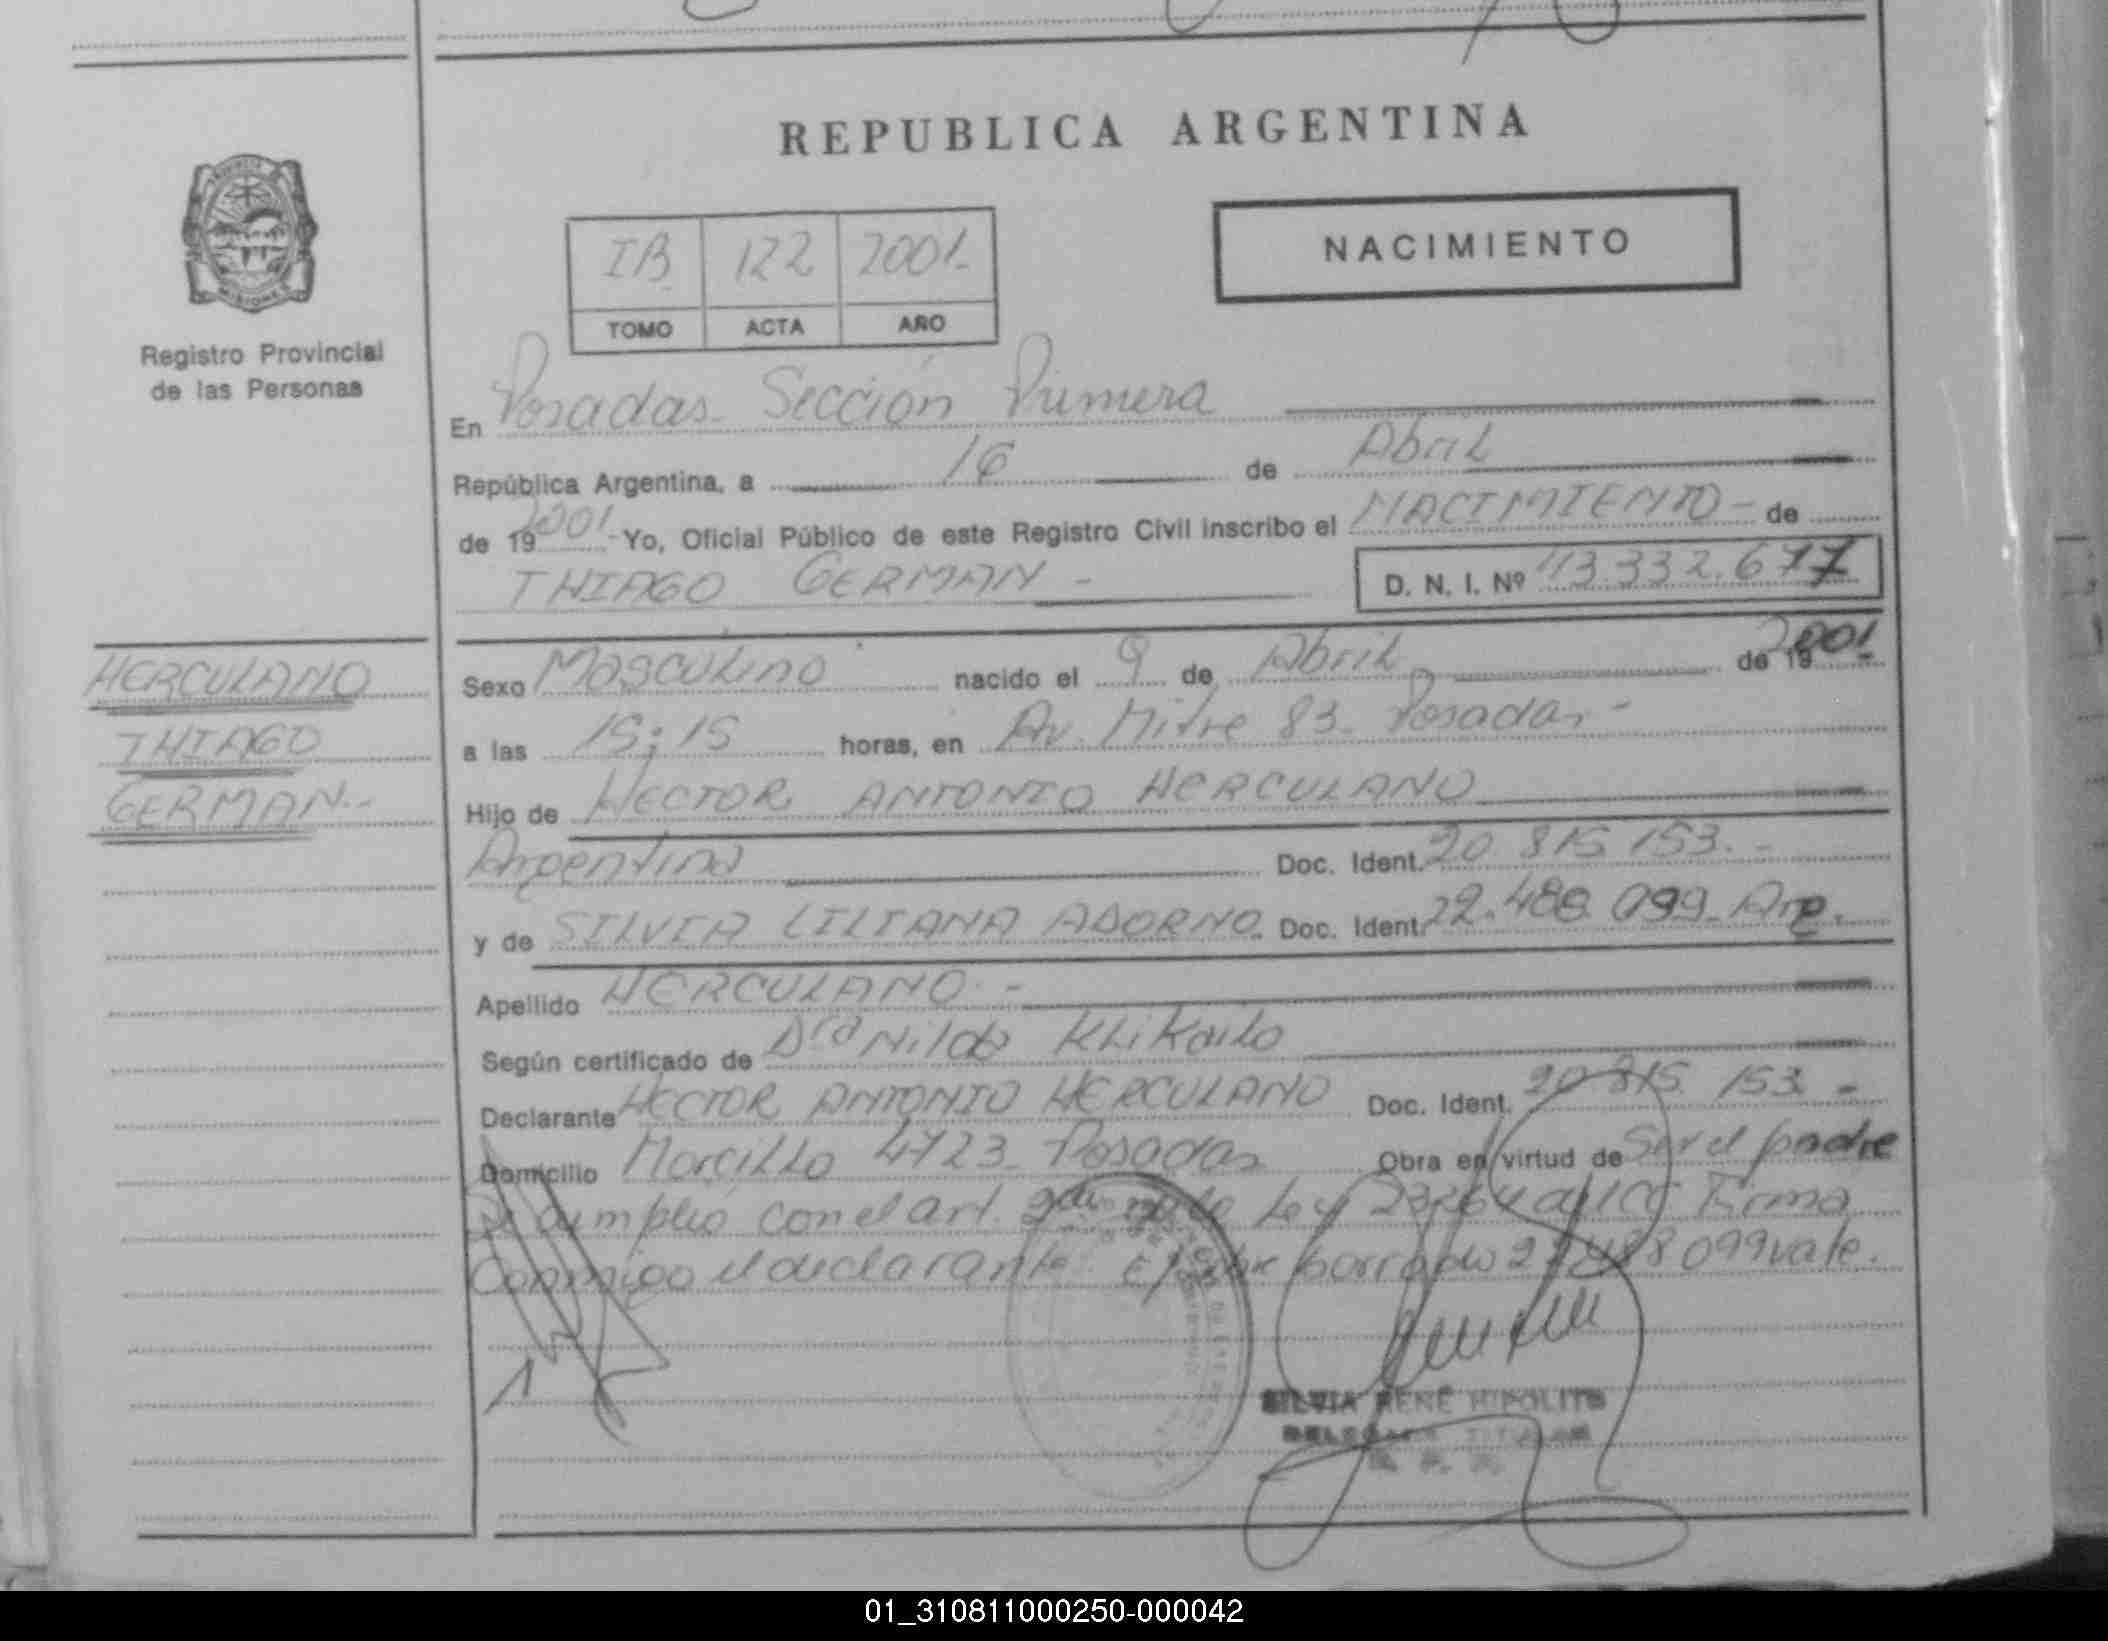 REPUBLICA ARGENTINA
MISIONES
Registro Provincial
de las Personas
IB 122 2001-
TOMO ACTA AÑO
NACIMIENTO
En Posadas Sección Primera
República Argentina, a 16 de Abril
de 19 2001 - Yo, Oficial Público de este Registro Civil inscribo el NACIMIENTO - de
THIAGO GERMAN - D. N. I. Nº 43.332.677
HERCULANO
THIAGO
GERMAN.-
Sexo Masculino nacido el 9 de Abril de 19 2001-
a las 15:15 horas, en Av. Mitre 83- Posadas -
Hijo de HECTOR ANTONIO HERCULANO
Argentina Doc. Ident. 20 815 153. -
y de SILVIA LILIANA ADORNO. Doc. Ident. 22.488 099- Arg.
Apellido HERCULANO -
Según certificado de Dra Nilda
Declarante HECTOR ANTONIO HERCULANO Doc. Ident. 20 815 153 -
Domicilio 4723- Posadas Obra en virtud de Ser el padre
Se cumplio con el art. de Ley 23264 Firma
Conmigo el declarante E/ sobre borrado 22488 099 vale.
SILVIA RENÉ HIPOLITO
TITULAR
01_310811000250-000042